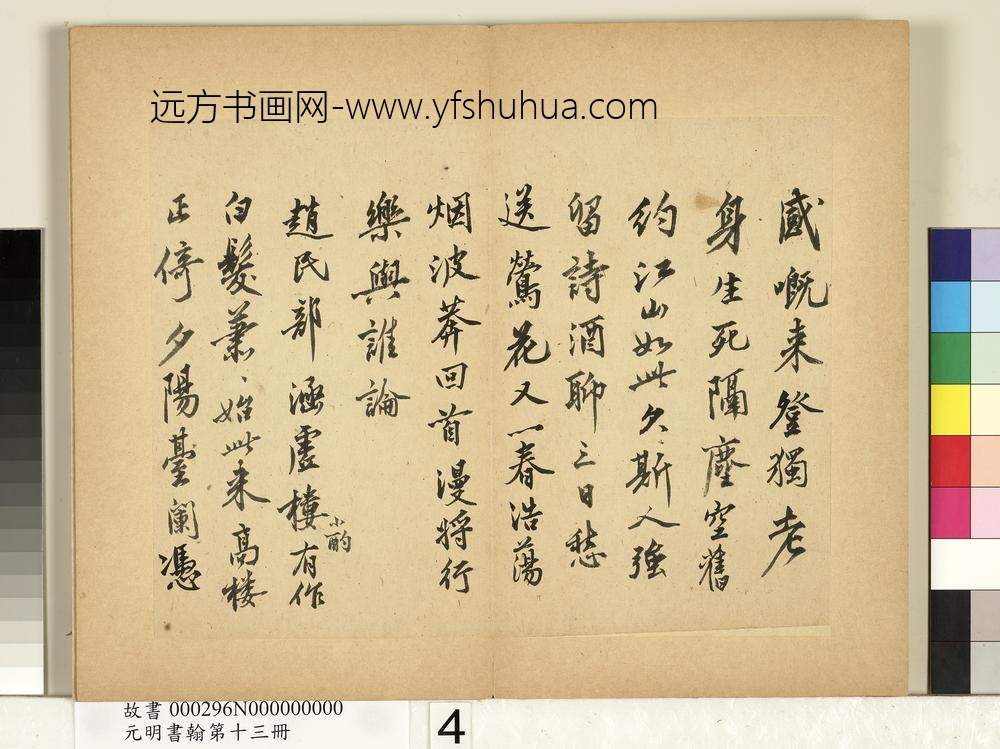 远方书画网-www.yfshuhua.com
感嘅来登獨老
身生死隔塵空舊
約江山如此久斯人強
留詩酒聊三日愁
送鶯花又一春浩蕩
烟波莽回首漫將行
樂與誰論
趙民部涵虛樓小酌有作
白髮蕭、始此来高楼
正倚夕陽臺闌憑
故書 000296N000000000
元明書翰第十三冊
4